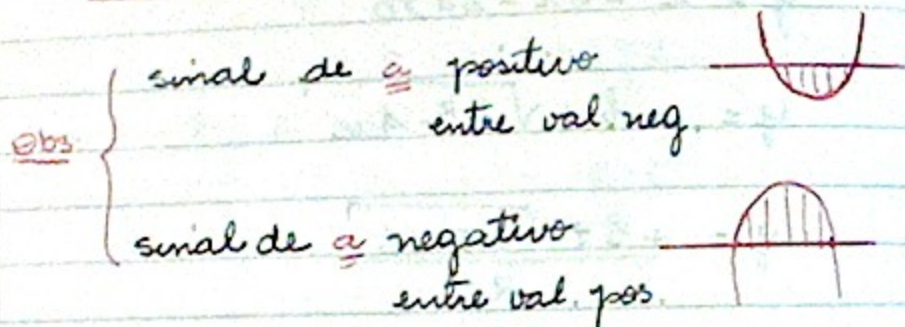 sinal de a positivo
entre val. neg.
Obs
sinal de a negativo
entre val. pos.